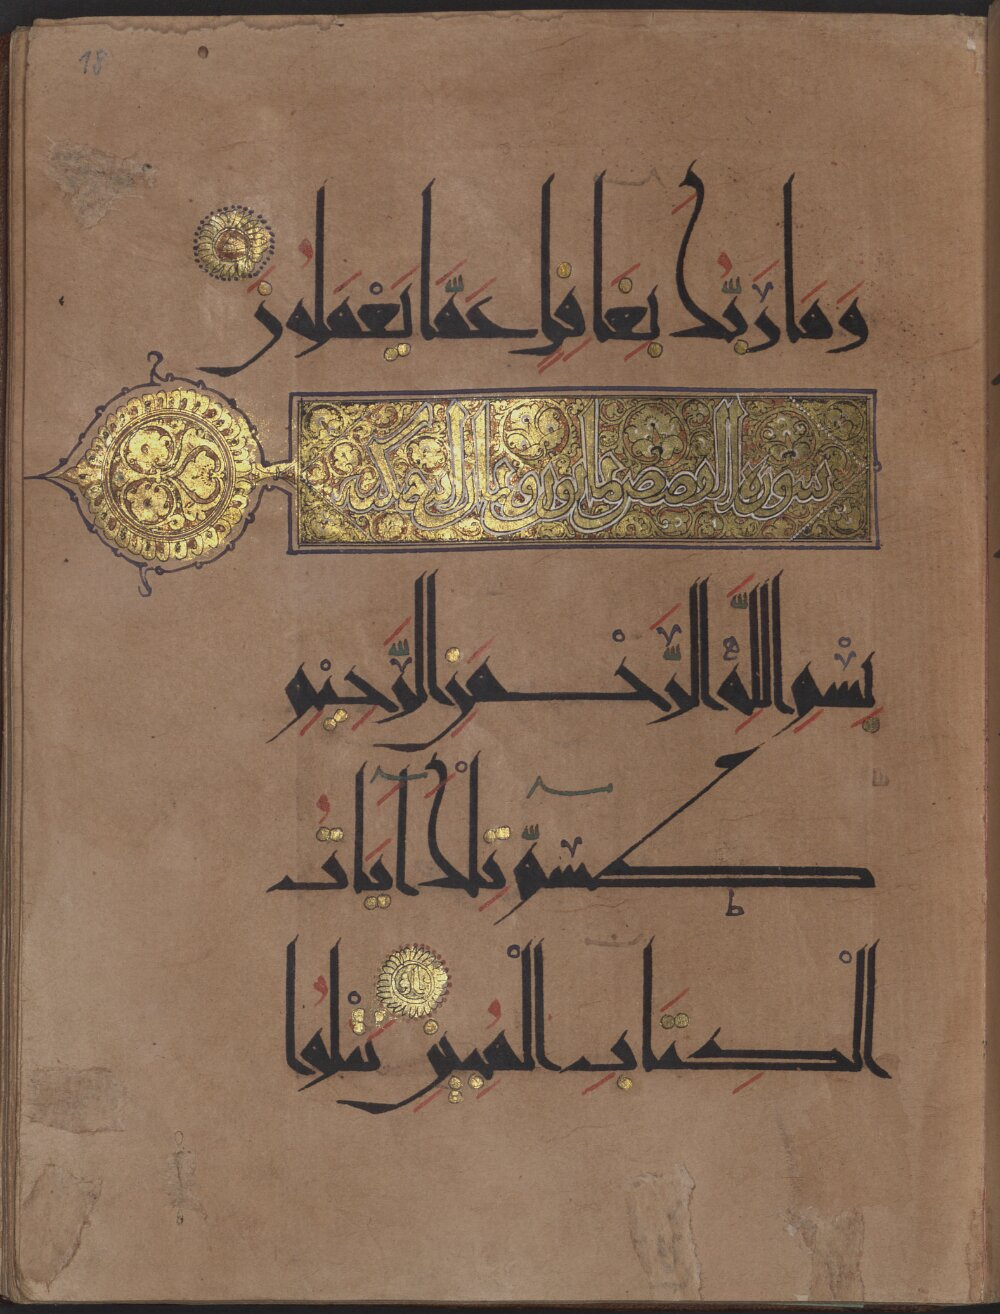 18
وَمَا رَبُّكَ بِغَافِلٍ عَمَّا يَعْمَلُونَ
سورة القصص ثمانون وثمان مكية
بِسْمِ اللَّهِ الرَّحْمَنِ الرَّحِيمِ
طسٓمّ تِلْكَ آيَاتُ
الْكِتَابِ الْمُبِينِ نَتْلُوا